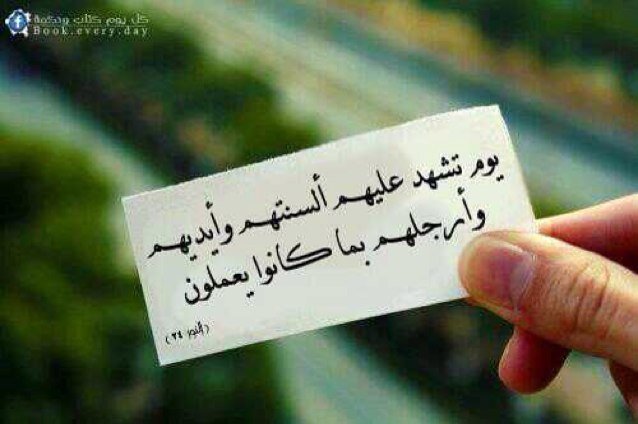 كل يوم كتاب وحكمة
Book.every.day
يوم تشهد عليهم ألسنتهم وأيديهم
وأرجلهم بما كانوا يعملون
(النور ٢٤)